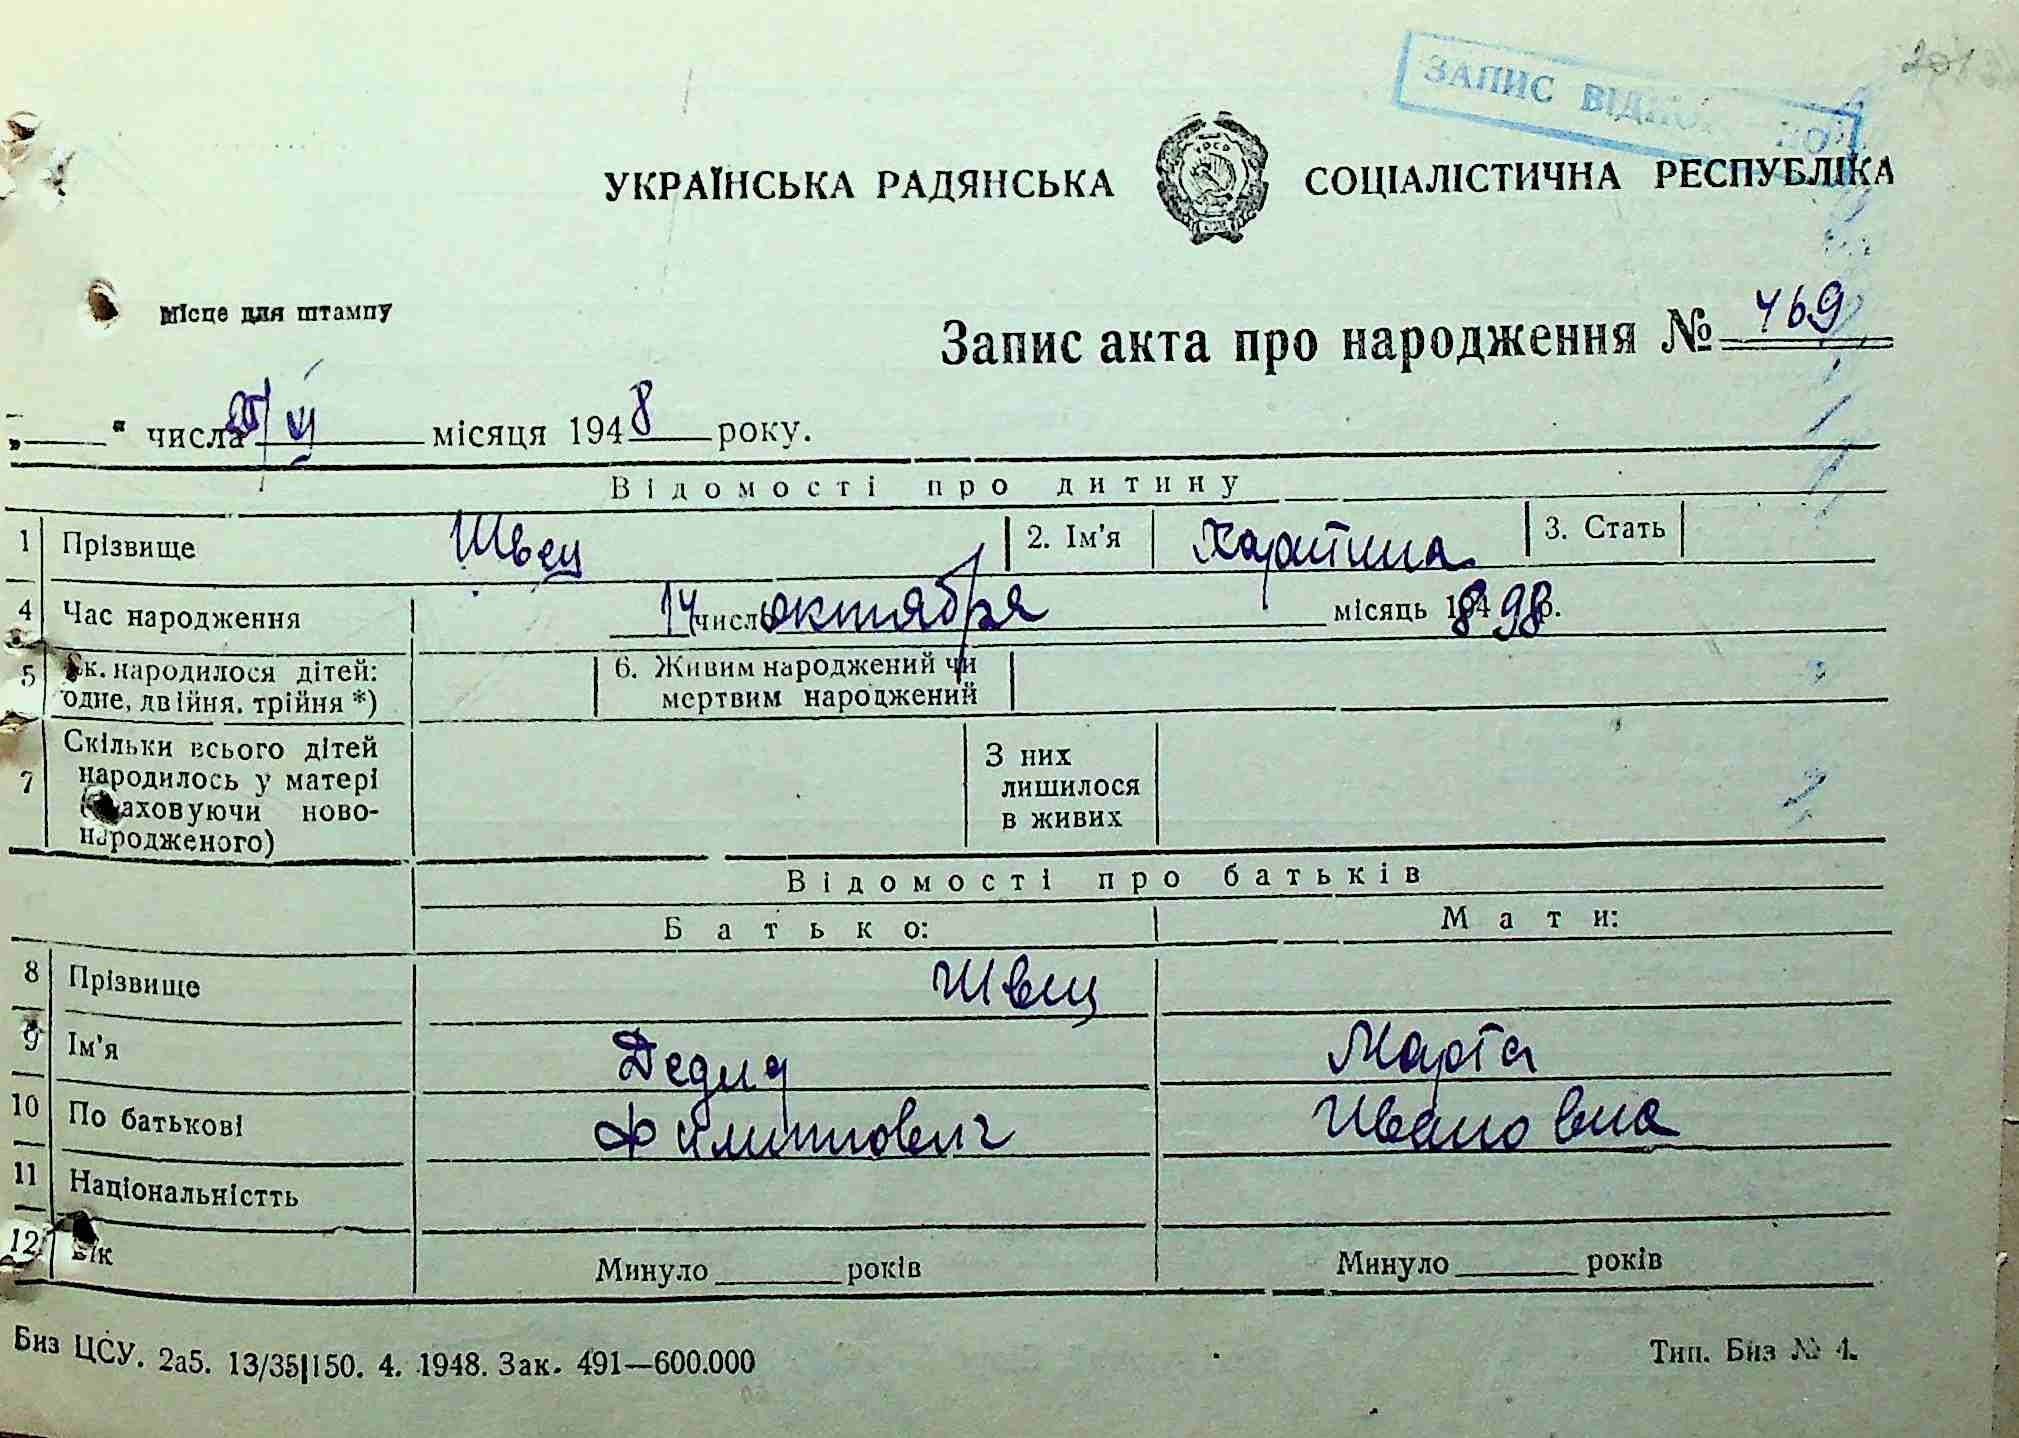 ЗАПИС
УКРАЇНСЬКА РАДЯНСЬКА СОЦІАЛІСТИЧНА РЕСПУБЛІКА
Місце для штампу
Запис акта про народження № 469
„ “ числа 25/VI місяця 1948 року.
Відомості про дитину
1 Прізвище Швец 2. Ім'я Харитина 3. Стать
4 Час народження 14 числ октября місяць 1898 р.
5 Як. народилося дітей: 6. Живим народжений чи
одне, двійня. трійня *) мертвим народжений
Скільки всього дітей З них
7 народилось у матері лишилося
(враховуючи ново- в живих
народженого)
Відомості про батьків
Батько: Мати:
8 Прізвище Швец
9 Ім'я Марта
10 По батькові Филиппович Ивановна
11 Національністть
12 Вік Минуло років Минуло років
Биз ЦСУ. 2а5. 13/35|150. 4. 1948. Зак. 491—600.000 Тип. Биз № 4.